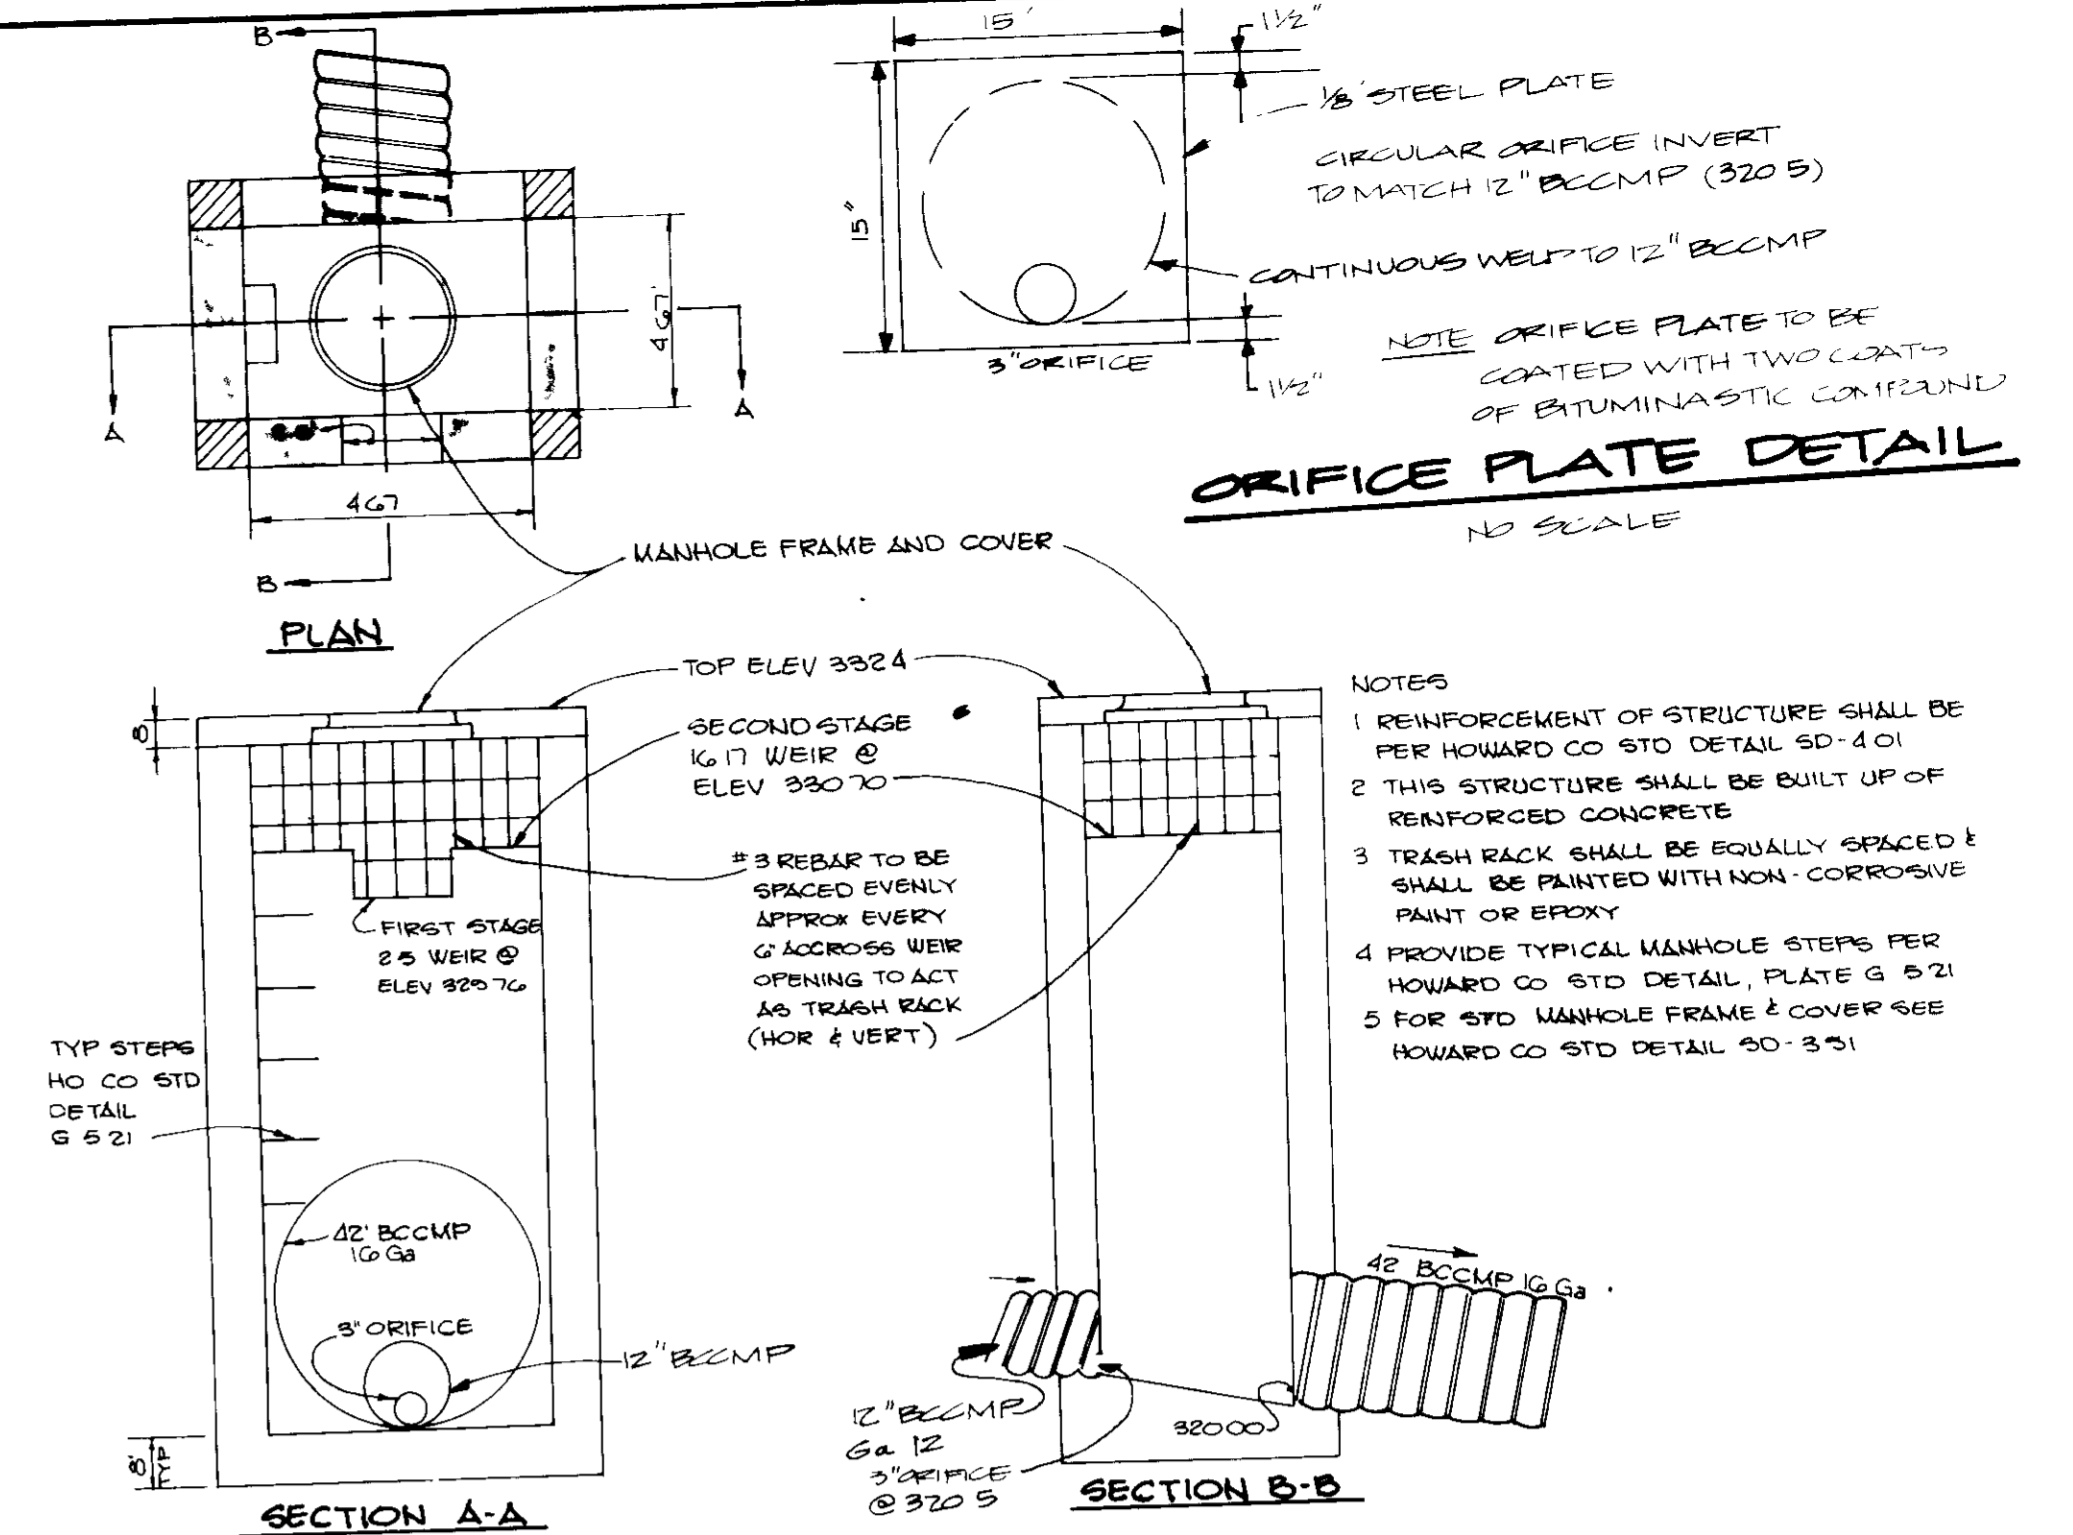 B
15'
1½"
⅛' STEEL PLATE
CIRCULAR ORIFICE INVERT
TO MATCH 12" BCCMP (320 5)
15"
CONTINUOUS WELD TO 12" BCCMP
4 67'
A
A
3" ORIFICE
1½"
NOTE ORIFICE PLATE TO BE
COATED WITH TWO COATS
OF BITUMINASTIC COMPOUND
ORIFICE PLATE DETAIL
NO SCALE
4 67
B
PLAN
MANHOLE FRAME AND COVER
TOP ELEV 332 4
8
SECOND STAGE
16 17 WEIR @
ELEV 330 70
#3 REBAR TO BE
SPACED EVENLY
APPROX EVERY
6" ACCROSS WEIR
OPENING TO ACT
AS TRASH RACK
(HOR & VERT)
FIRST STAGE
2 5 WEIR @
ELEV 329 76
TYP STEPS
HO CO STD
DETAIL
G 5 21
42' BCCMP
16 Ga
3" ORIFICE
12" BCCMP
8'
TYP
SECTION A-A
NOTES
1 REINFORCEMENT OF STRUCTURE SHALL BE
PER HOWARD CO STD DETAIL SD-4 01
2 THIS STRUCTURE SHALL BE BUILT UP OF
REINFORCED CONCRETE
3 TRASH RACK SHALL BE EQUALLY SPACED &
SHALL BE PAINTED WITH NON-CORROSIVE
PAINT OR EPOXY
4 PROVIDE TYPICAL MANHOLE STEPS PER
HOWARD CO STD DETAIL, PLATE G 5 21
5 FOR STD MANHOLE FRAME & COVER SEE
HOWARD CO STD DETAIL SD-3 51
42 BCCMP 16 Ga
12" BCCMP
Ga 12
3" ORIFICE
@ 320 5
320 00
SECTION B-B